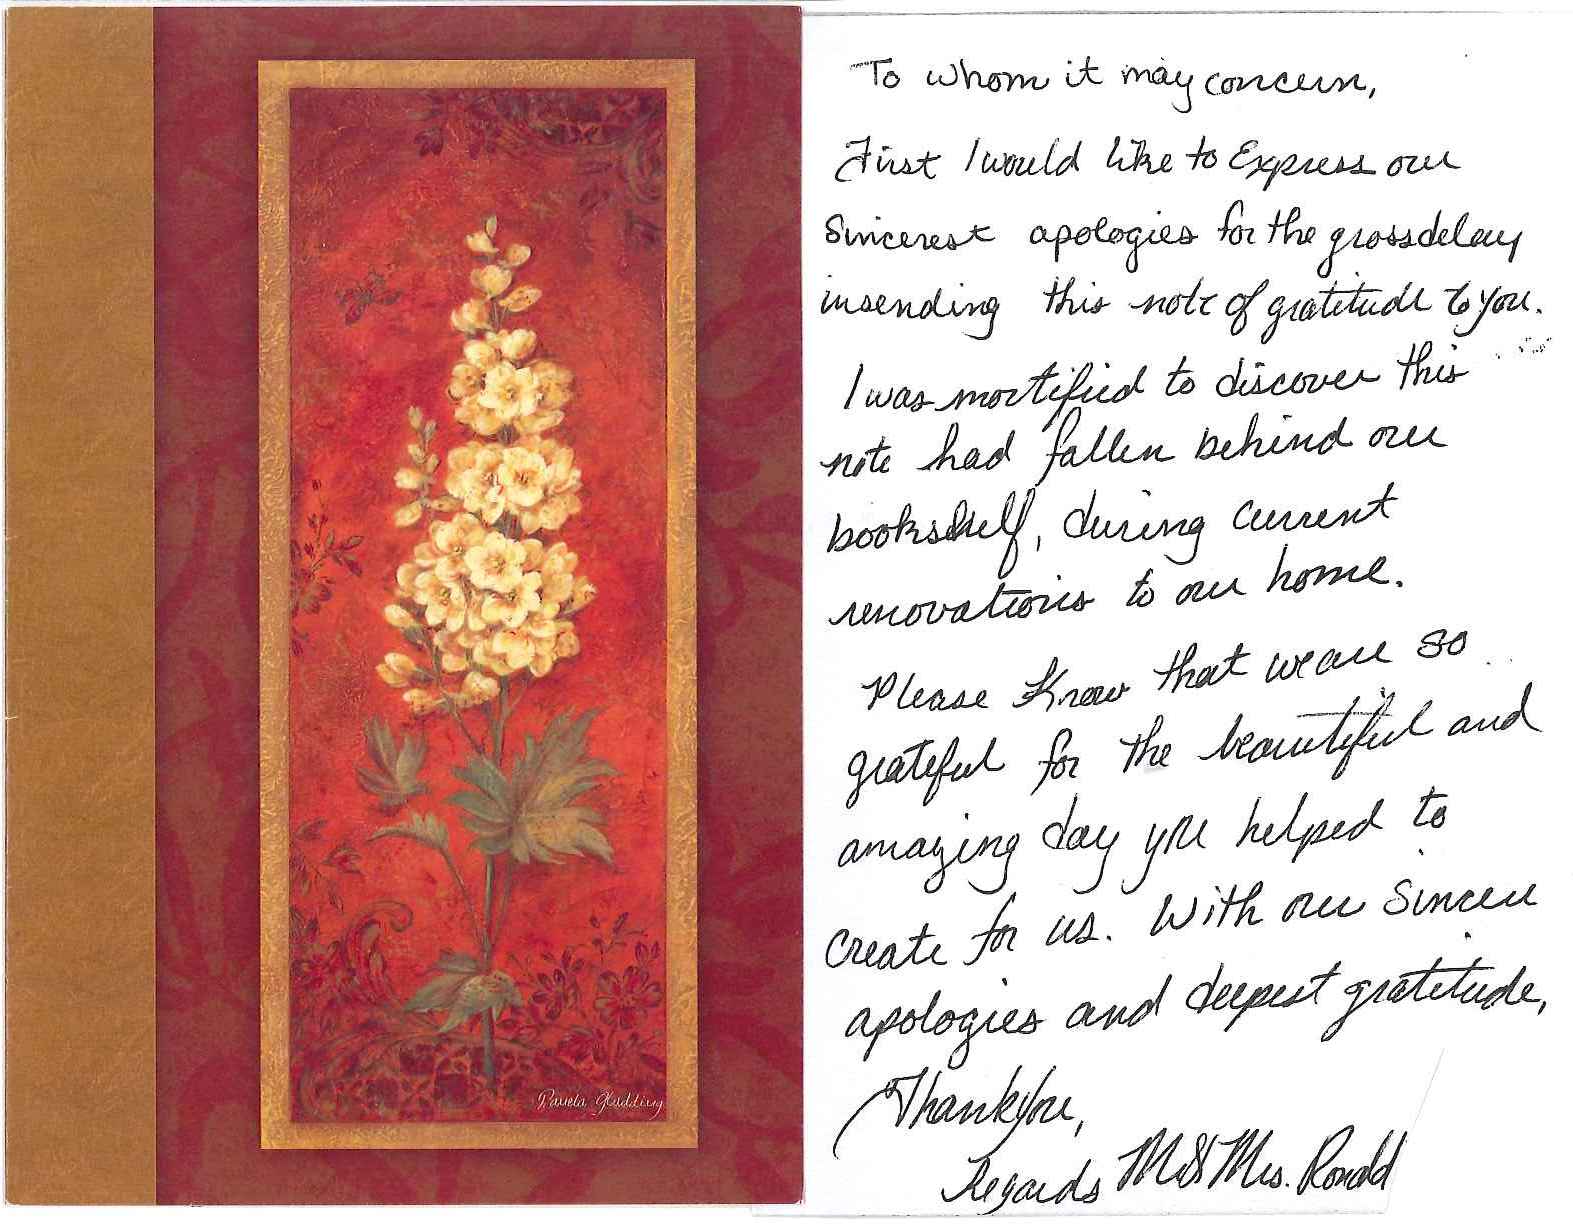 Pamela Gladding
To whom it may concern,
First I would like to Express our
Sincerest apologies for the gross delay
in sending this note of gratitude to you.
I was mortified to discover this
note had fallen behind our
bookshelf, during current
renovations to our home.
Please Know that we are so
grateful for the beautiful and
amazing day you helped to
create for us. With our Sincere
apologies and deepest gratitude,
Thank you,
Regards Mr & Mrs. Ronald